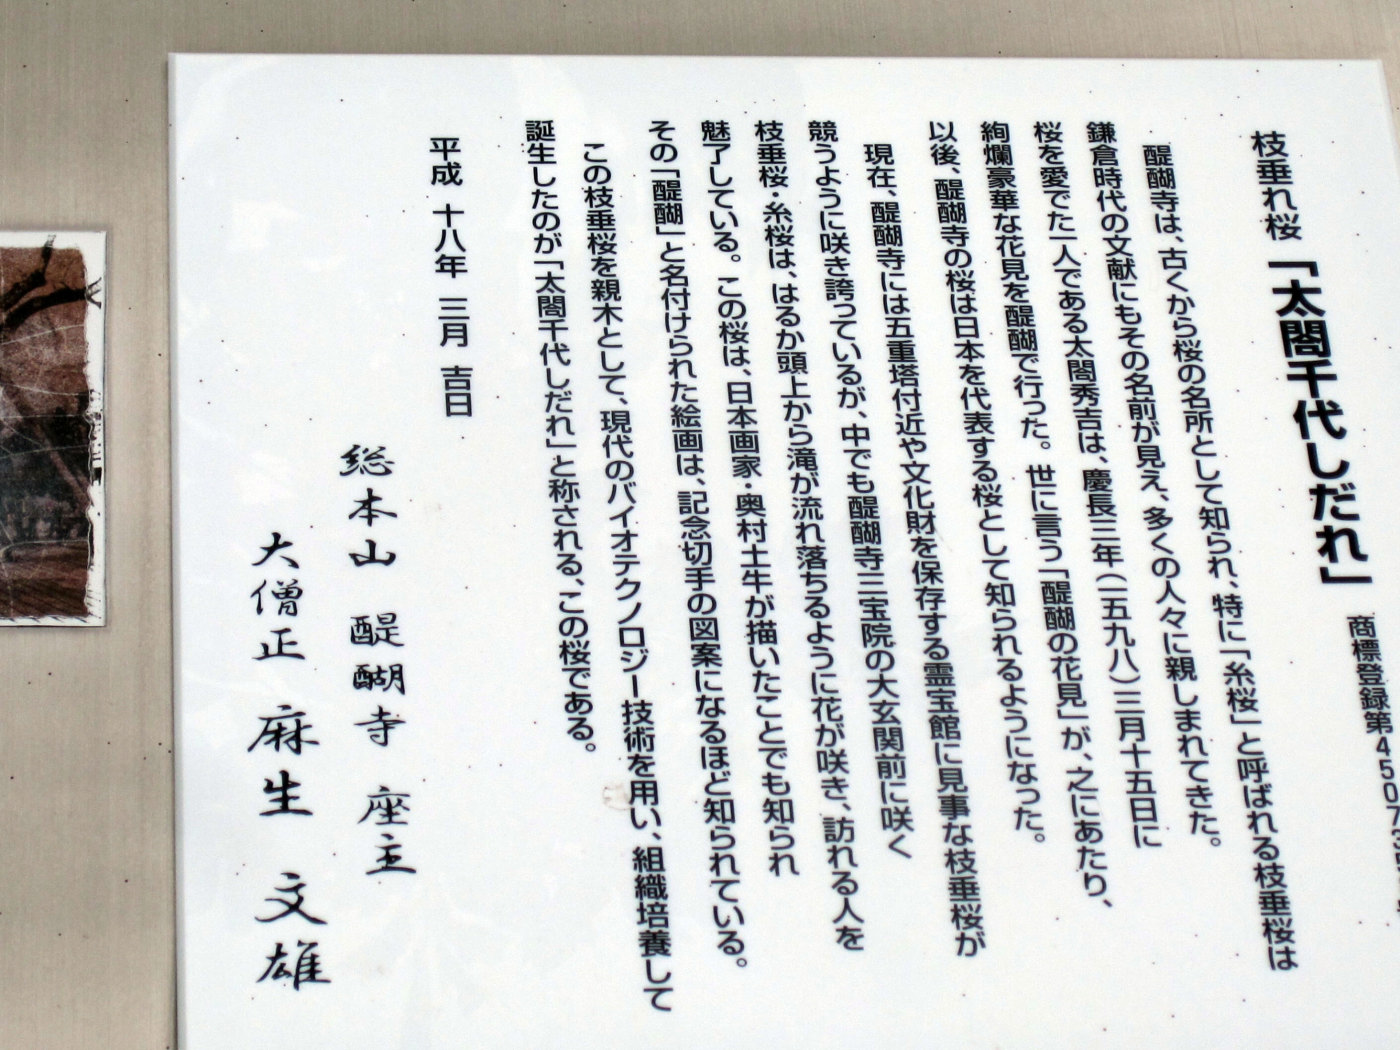 枝垂れ桜「太閤千代しだれ」
商標登録第４５０７３
醍醐寺は、古くから桜の名所として知られ、特に「糸桜」と呼ばれる枝垂桜は
鎌倉時代の文献にもその名前が見え、多くの人々に親しまれてきた。
桜を愛でた一人である太閤秀吉は、慶長三年（一五九八）三月十五日に
絢爛豪華な花見を醍醐で行った。世に言う「醍醐の花見」が、之にあたり、
以後、醍醐寺の桜は日本を代表する桜として知られるようになった。
現在、醍醐寺には五重塔付近や文化財を保存する霊宝館に見事な枝垂桜が
競うように咲き誇っているが、中でも醍醐寺三宝院の大玄関前に咲く
枝垂桜・糸桜は、はるか頭上から滝が流れ落ちるように花が咲き、訪れる人を
魅了している。この桜は、日本画家・奥村土牛が描いたことでも知られ
その「醍醐」と名付けられた絵画は、記念切手の図案になるほど知られている。
この枝垂桜を親木として、現代のバイオテクノロジー技術を用い、組織培養して
誕生したのが「太閤千代しだれ」と称される、この桜である。
平成 十八年 三月 吉日
総本山 醍醐寺 座主
大僧正 麻生 文雄